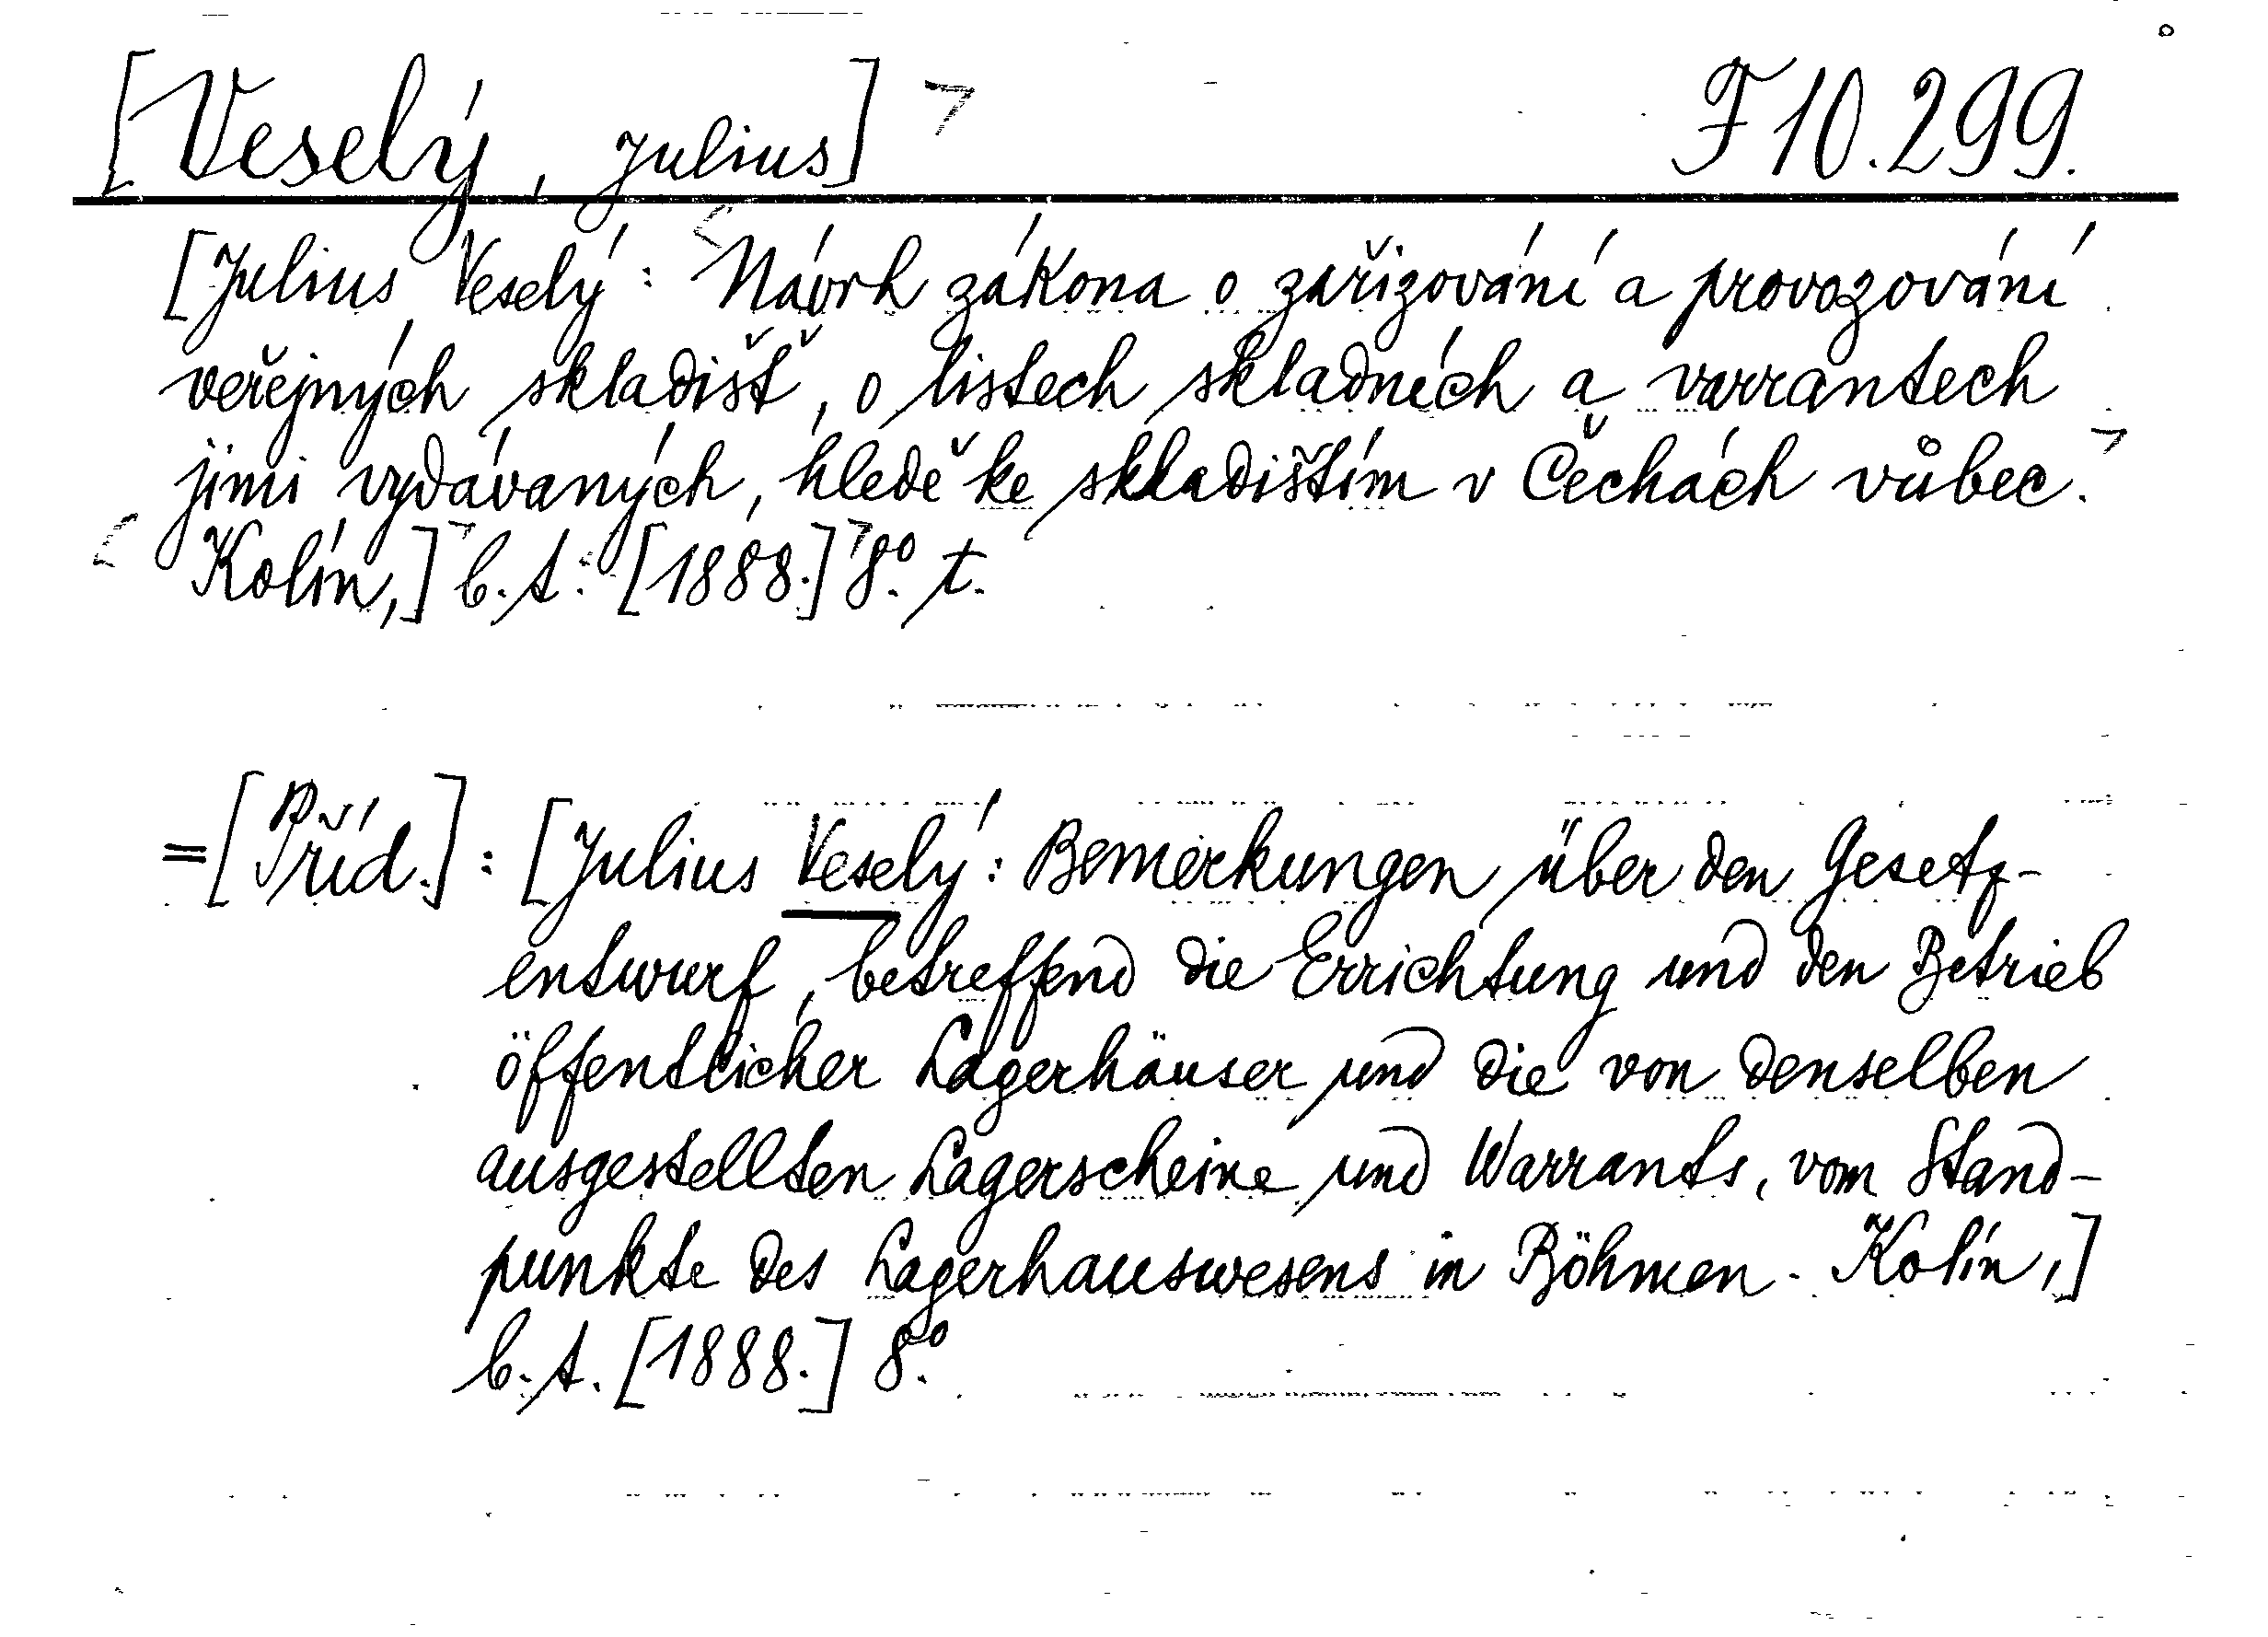 [Veselý, Julius] F 10.299.
[Julius Veselý: Návrh zákona o zařizování a provozování
veřejných skladišť, o listech skladních a varrantech
jimi vydávaných, hledě ke skladištím v Čechách vůbec.
Kolín,] b.t. [1888.] 8º. t.
=[Příd.]: [Julius Veselý: Bemerkungen über den Gesetz-
entwurf, betreffend die Errichtung und den Betrieb
öffentlicher Lagerhäuser und die von denselben
ausgestellten Lagerscheine und Warrants, vom Stand-
punkte des Lagerhauswesens in Böhmen. Kolín,]
b.t. [1888.] 8º.